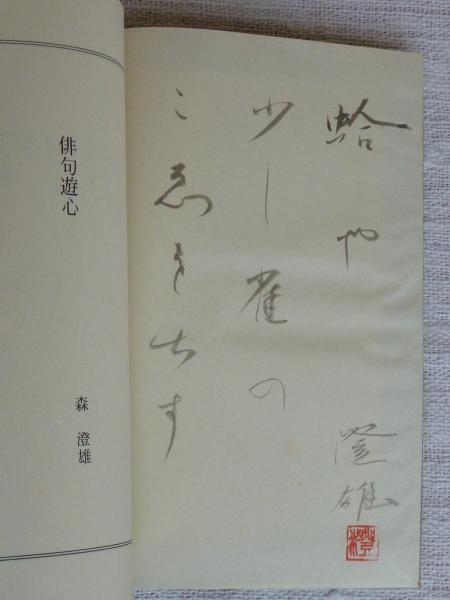 蛤や
少し雀の
こゑを出す
澄雄
俳句遊心
森 澄雄